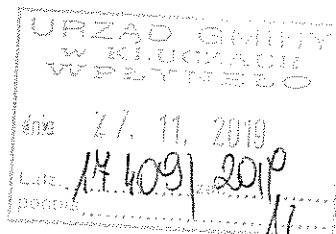 URZĄD GMINY
W KLUCZACH
WPŁYNĘŁO
dnia 27. 11. 2019
L.dz. 17409 2019
podpis